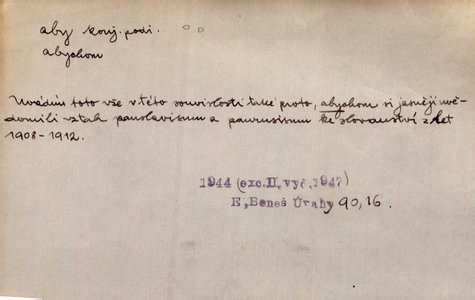 aby konj. podř.
abychom
Uvádím toto vše v této souvislosti také proto, abychom si jasněji uvě-
domili vztah panslavismu a panrusismu ke slovanství z let
1908-1912.
1944 (exc. II. vyd. 1947)
E. Beneš Úvahy 90,16.